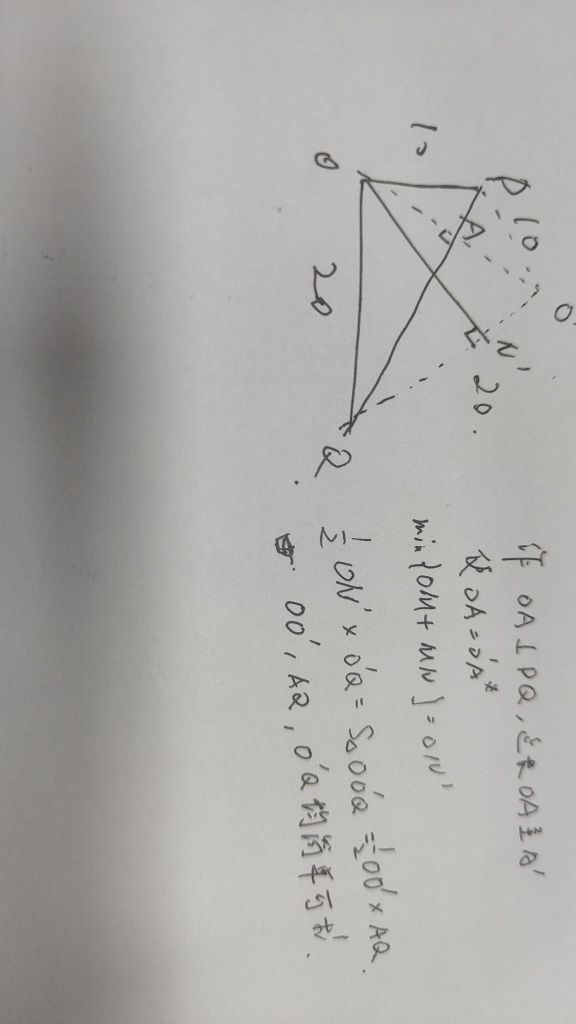 O
10
P
10
A
O'
20
N'
20.
Q
作 OA⊥PQ, 延长 OA至O'
使 OA=O'A
min{OM+MN}=ON'
½ ON' × O'Q = S△OO'Q = ½ OO' × AQ.
OO', AQ, O'Q 均简单可求.